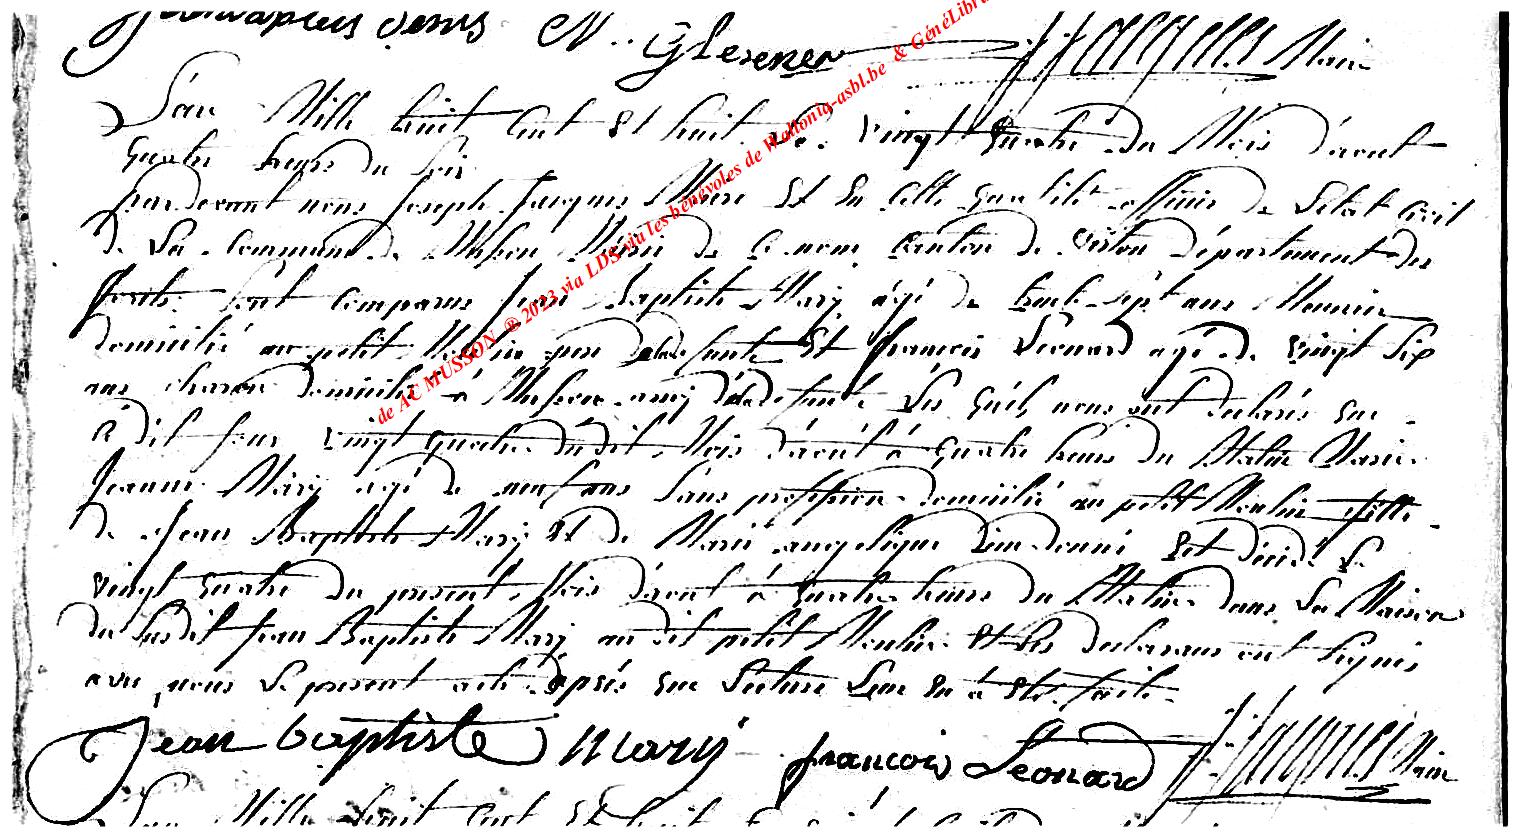 Jean baptiste Denis N. Glesener J. Jacques Maire
L'an Mille huit Cent Et huit Le vingt quatre du Mois d'aout
quatre heures du soir
pardevant nous Joseph Jacques Maire Et En Cette qualité officier de Letat Civil
de La Commune de Musson Mairie de Ce nom Canton de Virton département des
forêts Sont Comparus Jean Baptiste Mary agé de trente Sept ans Meunier
domicilié au petit Moulin père de la defunte Et francois Leonard agé de vingt Six
ans charon domicilié à Musson amy de la defunte Les quels nous ont declarés que
Ce dit jour vingt quatre du dit Mois d'aout à quatre heures du Matin Marie
Jeanne Mary agé de neuf ans Sans profession domicilié au petit Moulin fille
de Jean Baptiste Mary Et de Marie angelique Est décédé Le
vingt quatre du présent Mois d'aout à quatre heures du Matin dans La Maison
du Susdit Jean Baptiste Mary au dit petit Moulin Et Les declarans ont Signés
avec nous Le present acte Après que Lecture Leur En à Eté faite
Jean baptiste Mary francois Leonard J. Jacques Maire
L'an Mille huit Cent Et huit
de AC MUSSON ® 2023 via LDS via les bénévoles de Wallonia-asbl.be & GénéLibra